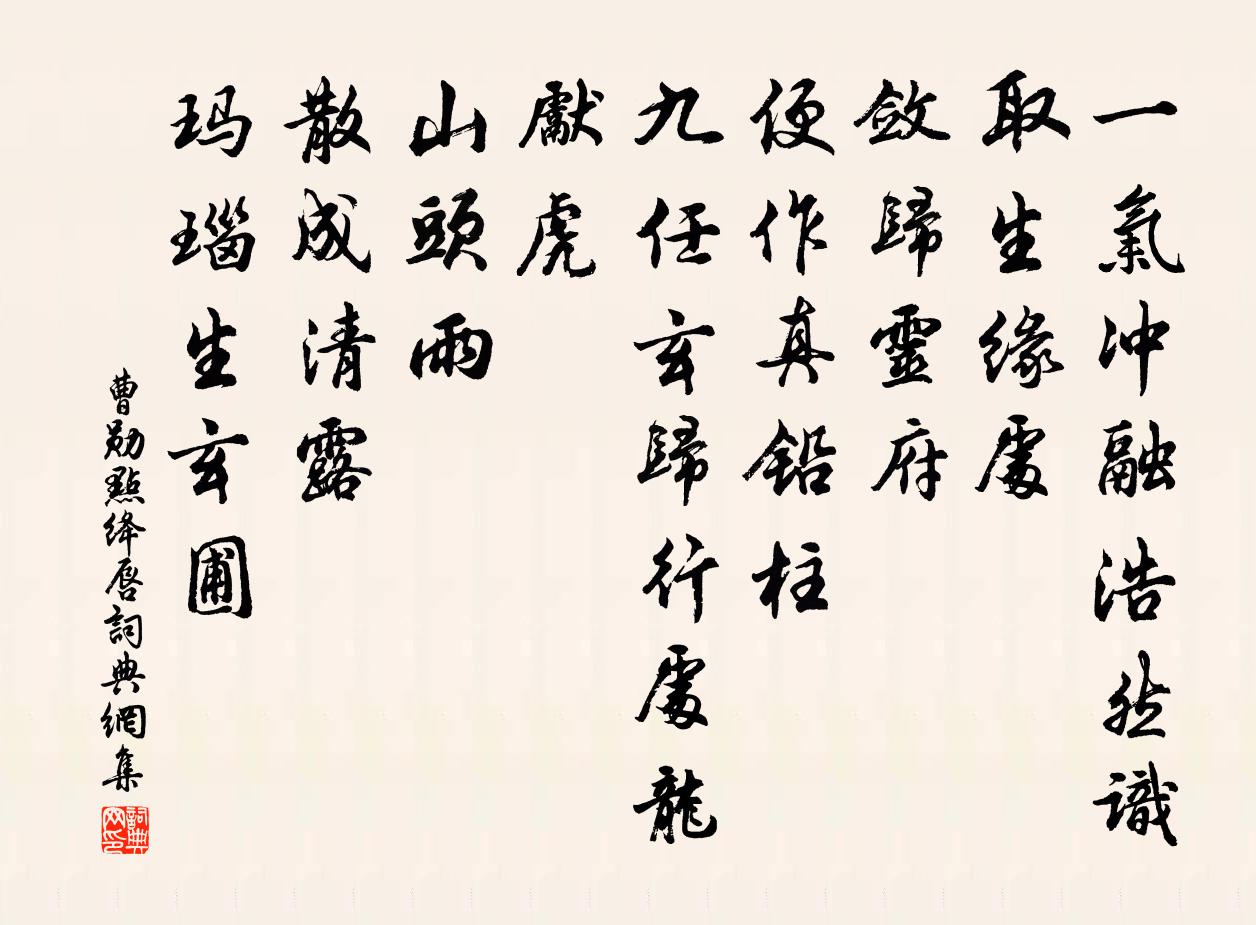 一氣冲融浩然識
取生緣處
斂歸靈府
便作真鉛柱
九任玄歸行處龍
獻虎
山頭雨
散成清露
玛瑙生玄圃
曹勛點绛唇詞典網集
詞典网印